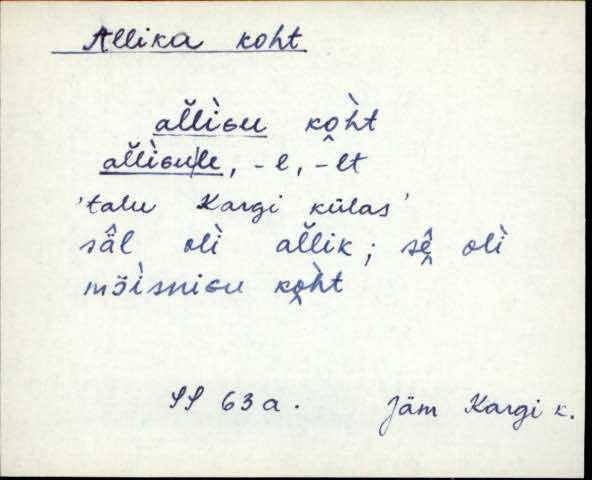 Allika koht
al̆l̀iɢu kò̭ht
al̆l̀iɢu|le, -e, -lt
'talu Kargi külas'
säl olì al̆lik; sḙ̂ olì
möìsniɢu kò̭ht
SS 63a. Jäm Kargi k.